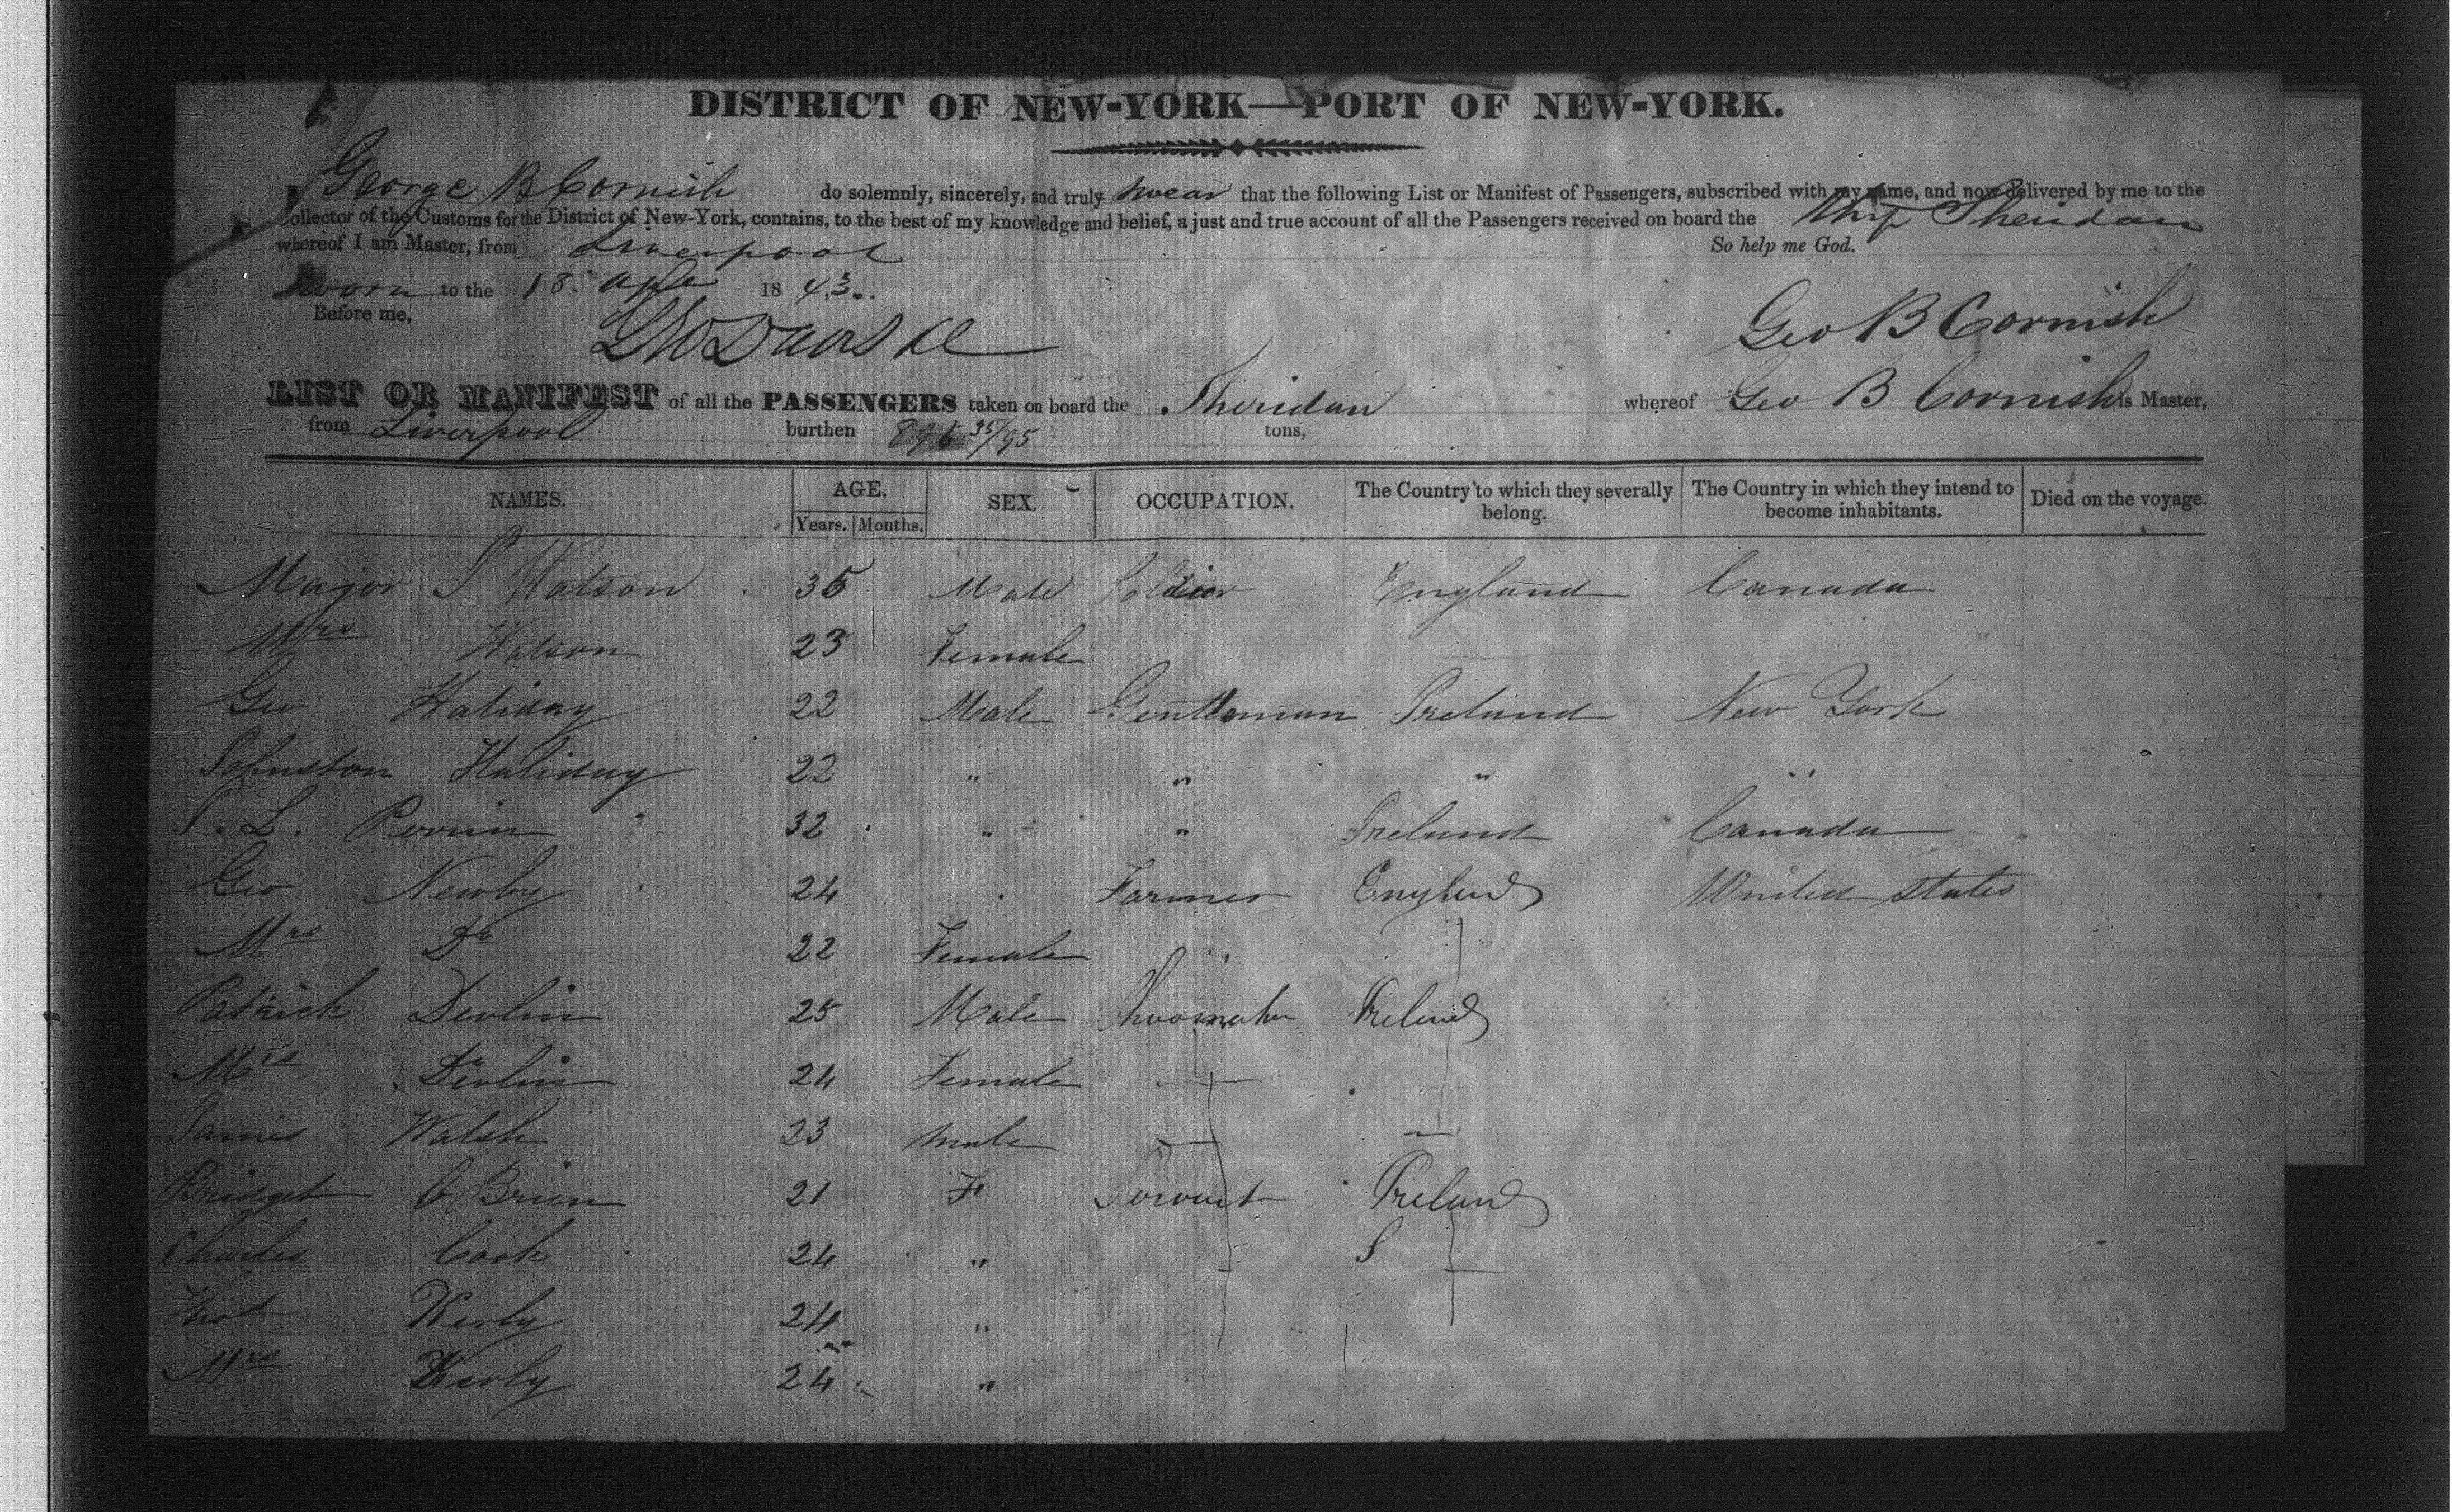 DISTRICT OF NEW-YORK—PORT OF NEW-YORK.
I George B Cornish do solemnly, sincerely, and truly swear that the following List or Manifest of Passengers, subscribed with my name, and now delivered by me to the
Collector of the Customs for the District of New-York, contains, to the best of my knowledge and belief, a just and true account of all the Passengers received on board the Ship Sheridan
whereof I am Master, from Liverpool So help me God.
Sworn to the 18 1843
Before me,
Geo B Cornish
LIST OR MANIFEST of all the PASSENGERS taken on board the Sheridan whereof Geo B Cornish is Master,
from Liverpool burthen 895 35/95 tons,
NAMES. AGE. Years. Months. SEX. OCCUPATION. The Country to which they severally belong. The Country in which they intend to become inhabitants. Died on the voyage.
Major J Watson 35 Male Soldier England Canada
Mrs Watson 23 Female
Geo Haliday 22 Male Gentleman Ireland New York
Johnston Haliday 22 " " " "
J. L. Perrin 32 " " Ireland Canada
Geo Newby 24 Farmer England United States
Mrs Do 22 Female "
Patrick Devlin 25 Male Shoemaker Ireland
Mrs Devlin 24 Female
James Walsh 23 male
Bridget O Brien 21 F Servant Ireland
Charles Cook 24 "
Thos Kerby 24 "
Mrs Kerby 24 "